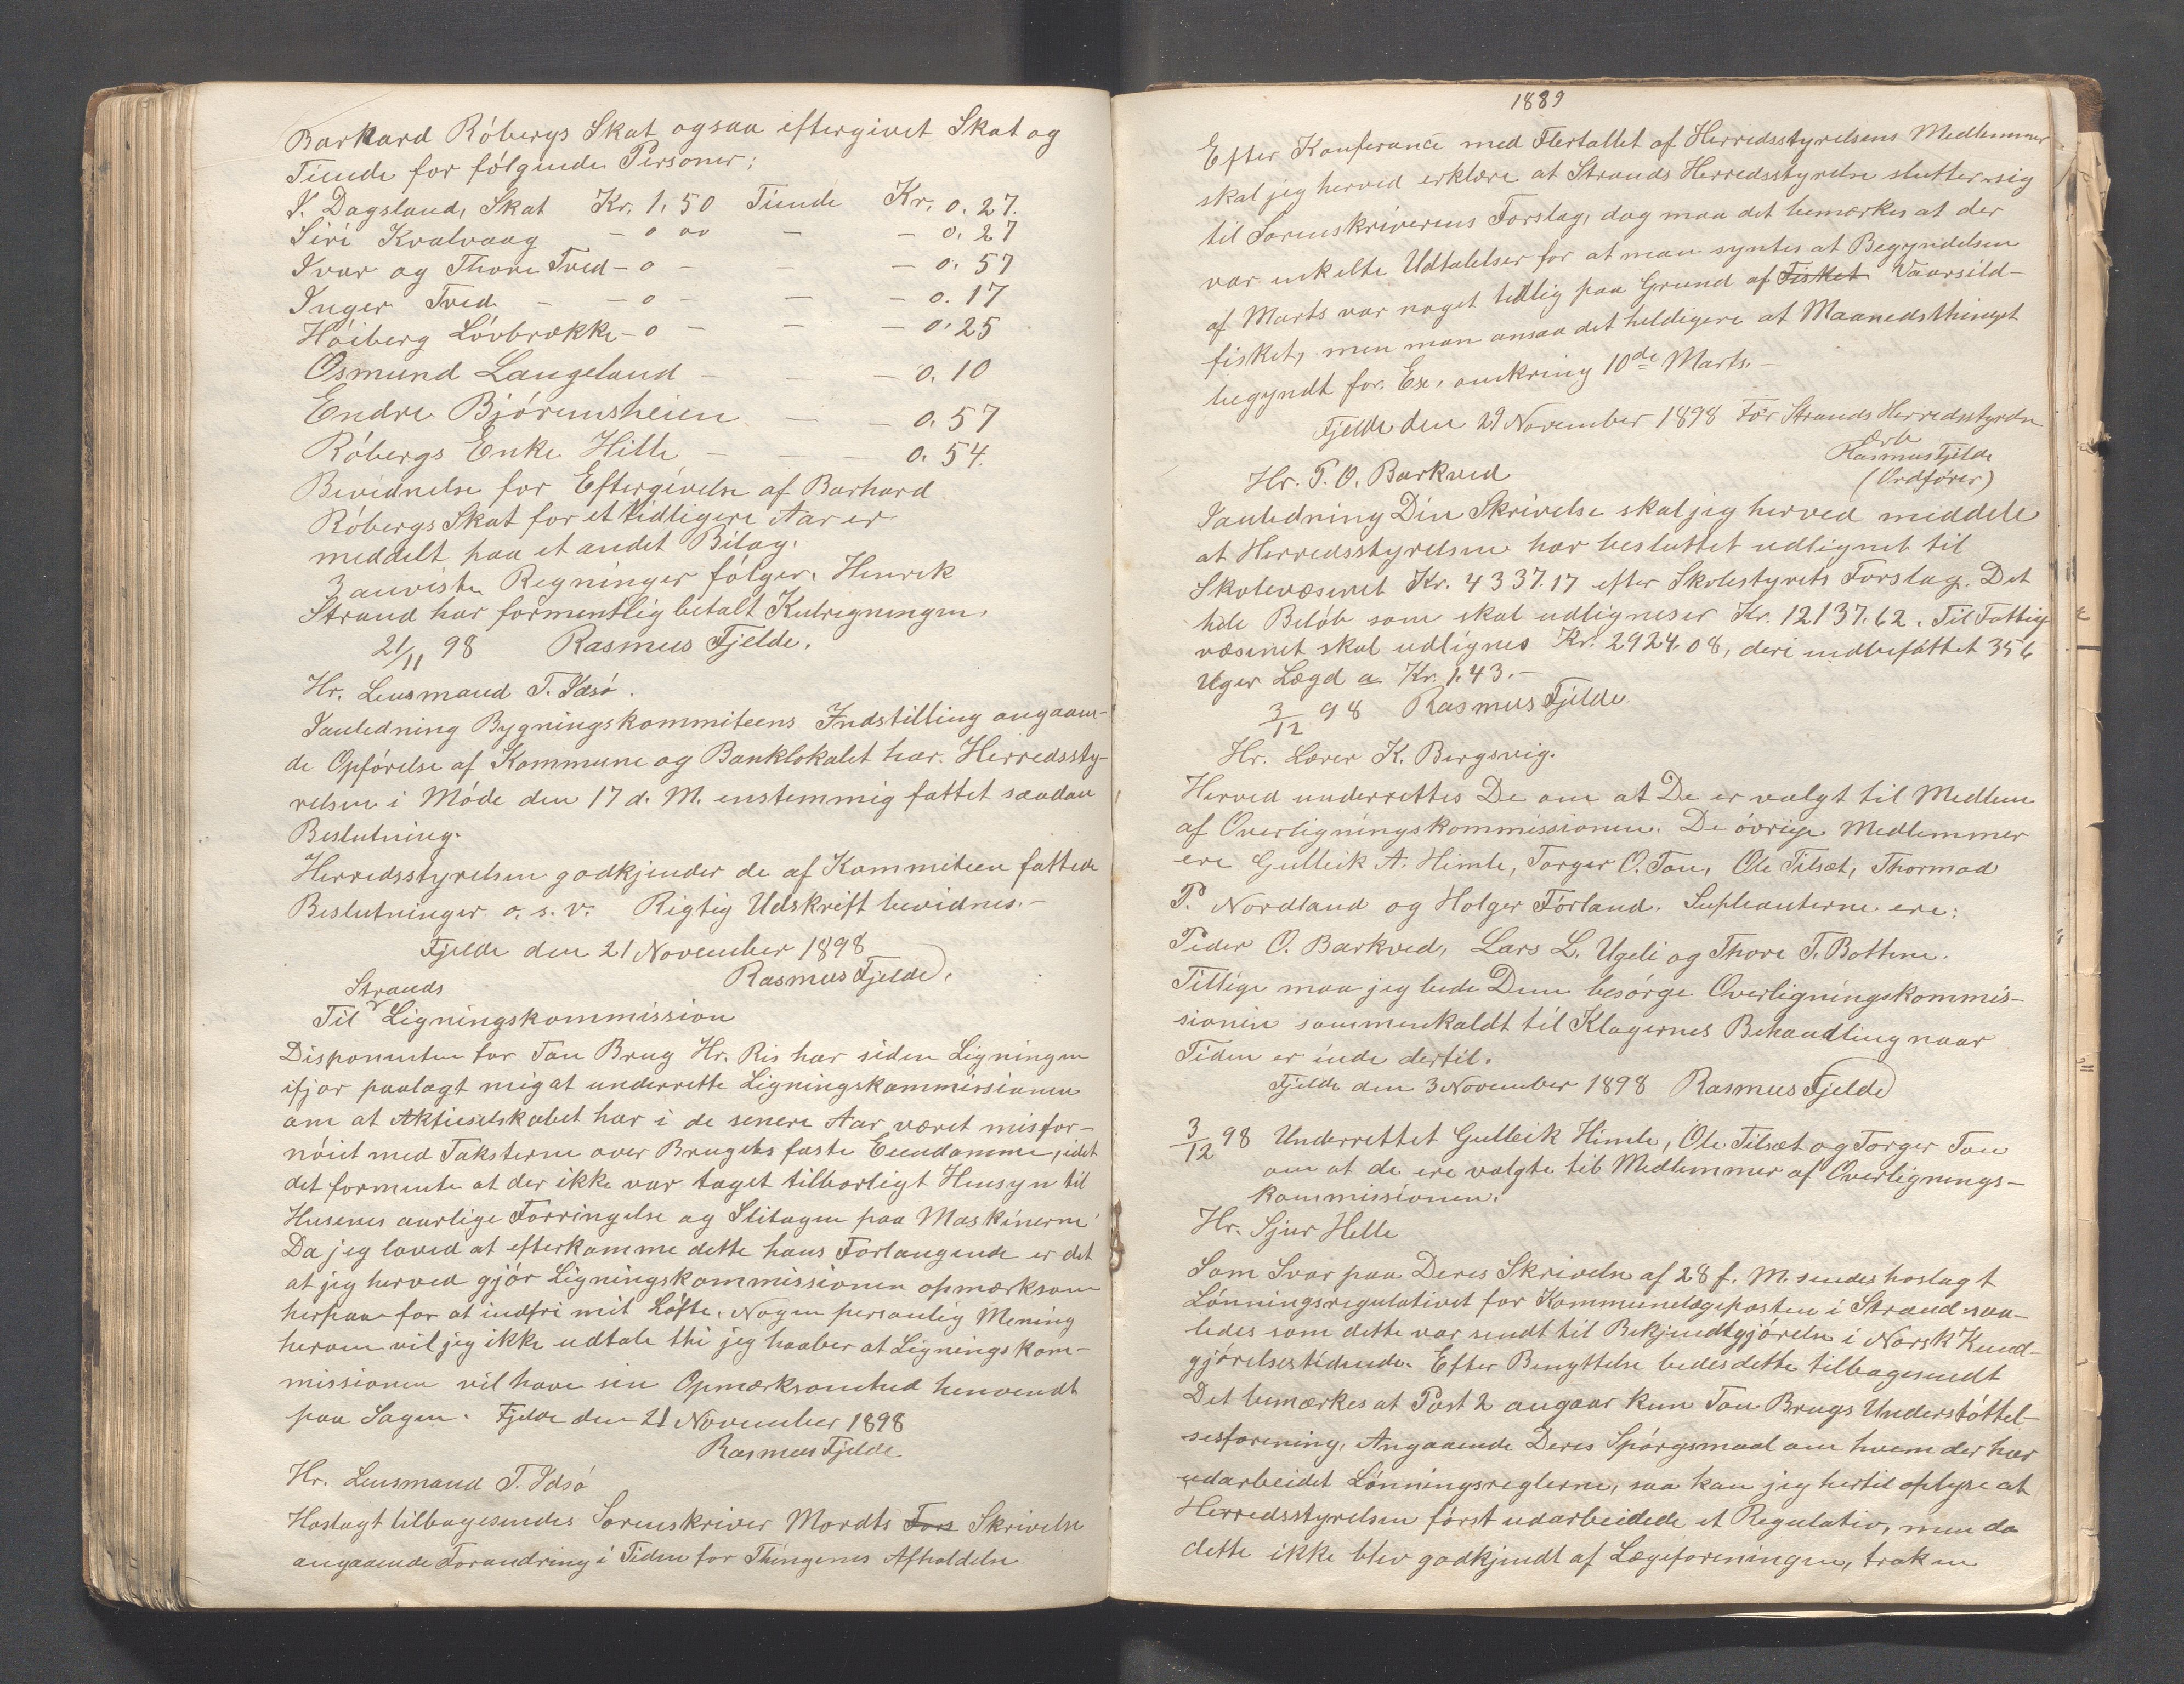 Barkard Róbergs Skat ogsaa eftergivet Skat og
Tiende for fólgende Personer:
I. Dagsland, Skat Kr. 1.50 Tiende Kr. 0.27.
Siri Kvalvaag - o oo - - 0.27
Ivar og Thore Tved - o - - - 0.57
Inger Tved - - o - - - 0.17
Hóiberg Lóvbrække - o - - - 0.25
Osmund Langeland - - - 0.10
Endre Bjórnsheien - - 0.57
Róbergs Enke Hille - - - 0.54.
Bevidnelse for Eftergivelse af Barhard
Róbergs Skat for et tidligere Aar er
meddelt paa et andet Bilag.
3 anviste Regninger fólger. Henrek
Strand har formentlig betalt Kulregningen.
21/11 98 Rasmus Fjelde.
Hr. Lensmand T. Idsó.
Ianledning Bygningskommiteens Indstilling angaaen-
de Opfórelse af Kommune og Banklokalet har Herredssty-
relsen i Móde den 17 d. M. enstemmig fattet saadan
Beslutning.
Herredsstyrelsen godkjender de af Kommiteen fattede
Beslutninger o. s. v. Rigtig Udskrift bevidnes.-
Fjelde den 21 November 1898
Rasmus Fjelde.
Strands
Til Ligningskommission
Disponenten for Tau Brug Hr. Ris har siden Ligningen
ifjor paalagt mig at underrette Ligningskommissionen
om at Aktieselskabet har i de senere Aar været misfor-
nóiet med Taksterne over Brugets faste Eiendomme, idet
det formente at der ikke var taget tilbørligt Hensyn til
Husenes aarlige Forringelse og Slitagen paa Maskinerne
Da jeg loved at efterkomme dette hans Forlangende er det
at jeg herved gjór Ligningskommissionen opmærksom
herpaa for at indfri mit Lófte. Nogen personlig Mening
herom vil jeg ikke udtale thi jeg haaber at Ligningskom-
missionen vil have sin Opmærksomhed henvendt
paa Sagen. Fjelde den 21 November 1898
Rasmus Fjelde
Hr. Lensmand T. Idsó
Hoslagt tilbagesendes Sorenskriver Mordts Fors Skrivelse
angaaende Forandring i Tiden for Thingenes Afholdelse
1889
Efter Konferance med Flertallet af Herredsstyrelsens Medlemmer
skal jeg herved erklære at Strands Herredsstyrelse slutter sig
til Sorenskriverens Forslag, dog maa det bemærkes at der
var enkelte Udtalelser for at man syntes at Begyndelsen
af Marts var noget tidlig paa Grund af Fisket Vaarsild-
fisket, men man ansaa det heldigere at Maanedsthinget
begyndt for Ex. omkring 10de Marts.-
Fjelde den 29 November 1898 For Strands Herredsstyrelse
Erb
Rasmus Fjelde
(Ordfører)
Hr. P. O. Barkved
Ianledning Din Skrivelse skal jeg herved meddele
at Herredsstyrelsen har besluttet udlignet til
Skolevæsenet Kr. 4337.17 efter Skolestyrets Forslag. Det
hele Belób som skal udlignes er Kr. 12137.62. Til Fattig-
væsenet skal udlignes Kr. 2924.08, deri indbefattet 356
Uger Lægd a Kr. 1.43.-
3/12 98 Rasmus Fjelde
Hr. Lærer K. Bergsvig.
Herved underrettes De om at De er valgt til Medlem
af Overligningskommissionen. De óvrige Medlemmer
ere Gulleik A. Himle, Torger O. Tau, Ole Tilset, Thormod
P. Nordland og Holger Fórland. Supleanterne ere:
Peder O. Barkved, Lars L. Ugeli og Thore T. Bothne.
Tillige maa jeg bede Dem besórge Overligningskommis-
sionen sammenkaldt til Klagernes Behandling naar
Tiden er inde dertil.
Fjelde den 3 November 1898 Rasmus Fjelde
3/12 98 Underrettet Gulleik Himle, Ole Tilset og Torger Tau
om at de ere valgte til Medlemmer af Overlignings-
kommissionen.
Hr. Sjur Helle
Som Svar paa Deres Skrivelse af 28 f. M. sendes hoslagt
Lónningsregulativet for Kommunelægeposten i Strand saa-
ledes som dette var sendt til Bekjendtgjórelse i Norsk Kund-
gjórelsestidende. Efter Benyttelse bedes dette tilbagesendt
Det bemærkes at Post 2 angaar kun Tau Brugs Understóttel-
sesforening. Angaaende Deres Spórgsmaal om hvem der har
udarbeidet Lónningsreglerne, saa kan jeg hertil oplyse at
Herredsstyrelsen fórst udarbeidede et Regulativ, men da
dette ikke blev godkjendt af Lægeforeningen, trak en